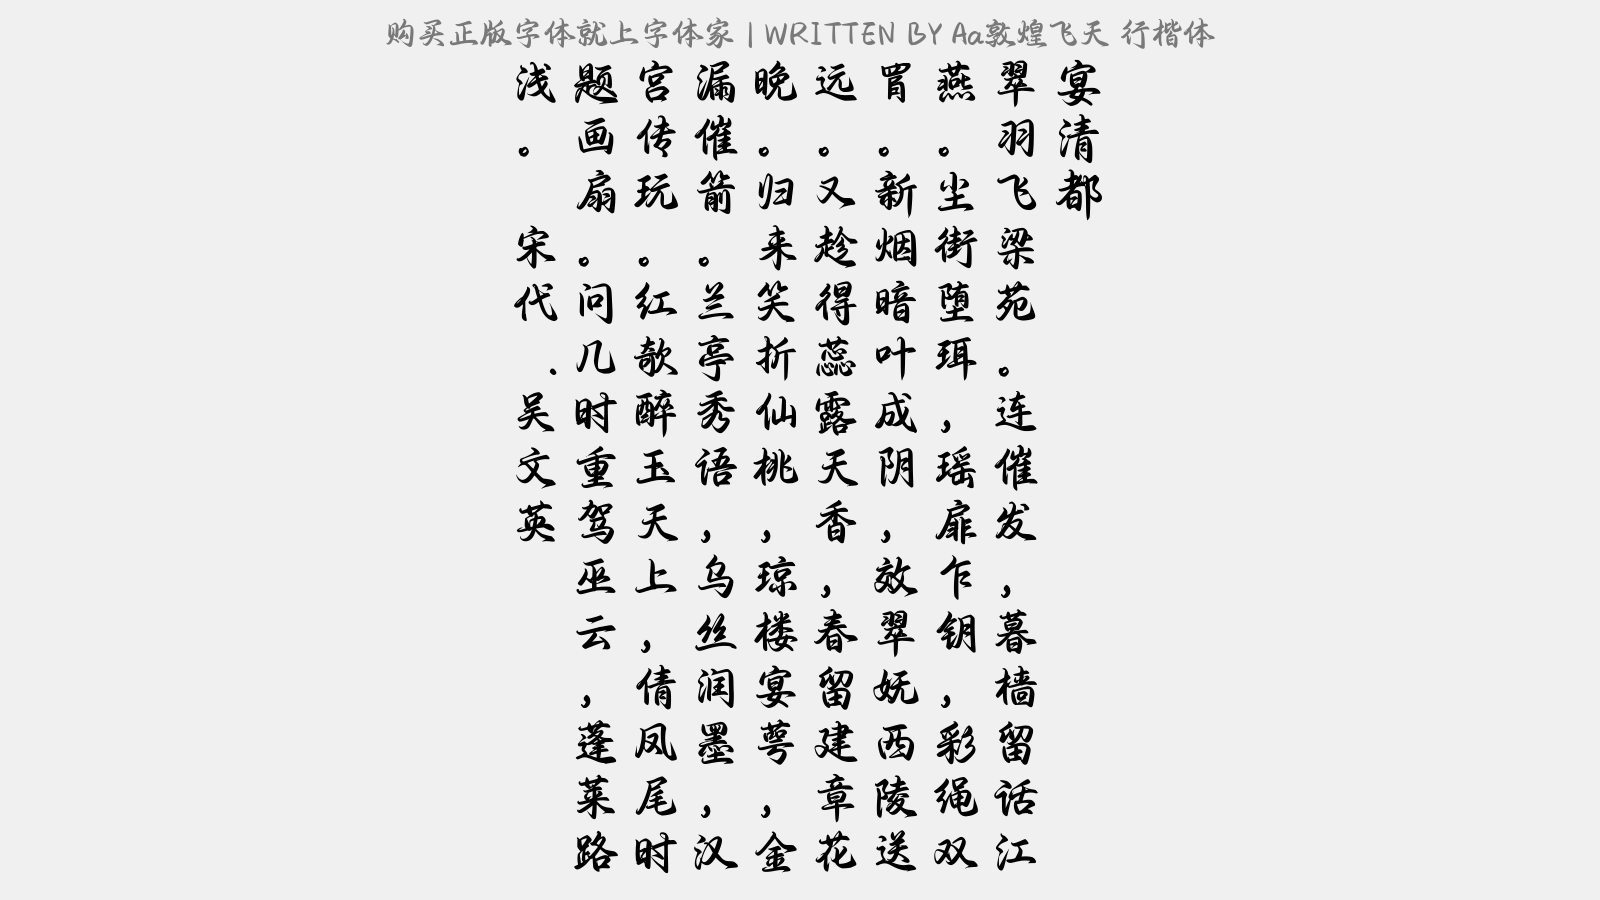 购买正版字体就上字体家 | WRITTEN BY Aa敦煌飞天 行楷体
宴清都
翠羽飞梁苑。连催发，暮樯留话江
燕。尘街堕珥，瑶扉乍钥，彩绳双
罥。新烟暗叶成阴，效翠妩西陵送
远。又趁得蕊露天香，春留建章花
晚。归来笑折仙桃，琼楼宴萼，金
漏催箭。兰亭秀语，乌丝润墨，汉
宫传玩。红欹醉玉天上，倩凤尾时
题画扇。问几时重驾巫云，蓬莱路
浅。 宋代.吴文英